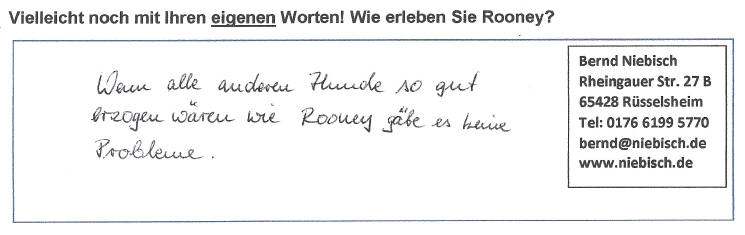 Vielleicht noch mit Ihren eigenen Worten! Wie erleben Sie Rooney?
Wenn alle anderen Hunde so gut
erzogen wären wie Rooney gäbe es keine
Probleme.
Bernd Niebisch
Rheingauer Str. 27 B
65428 Rüsselsheim
Tel: 0176 6199 5770
bernd@niebisch.de
www.niebisch.de